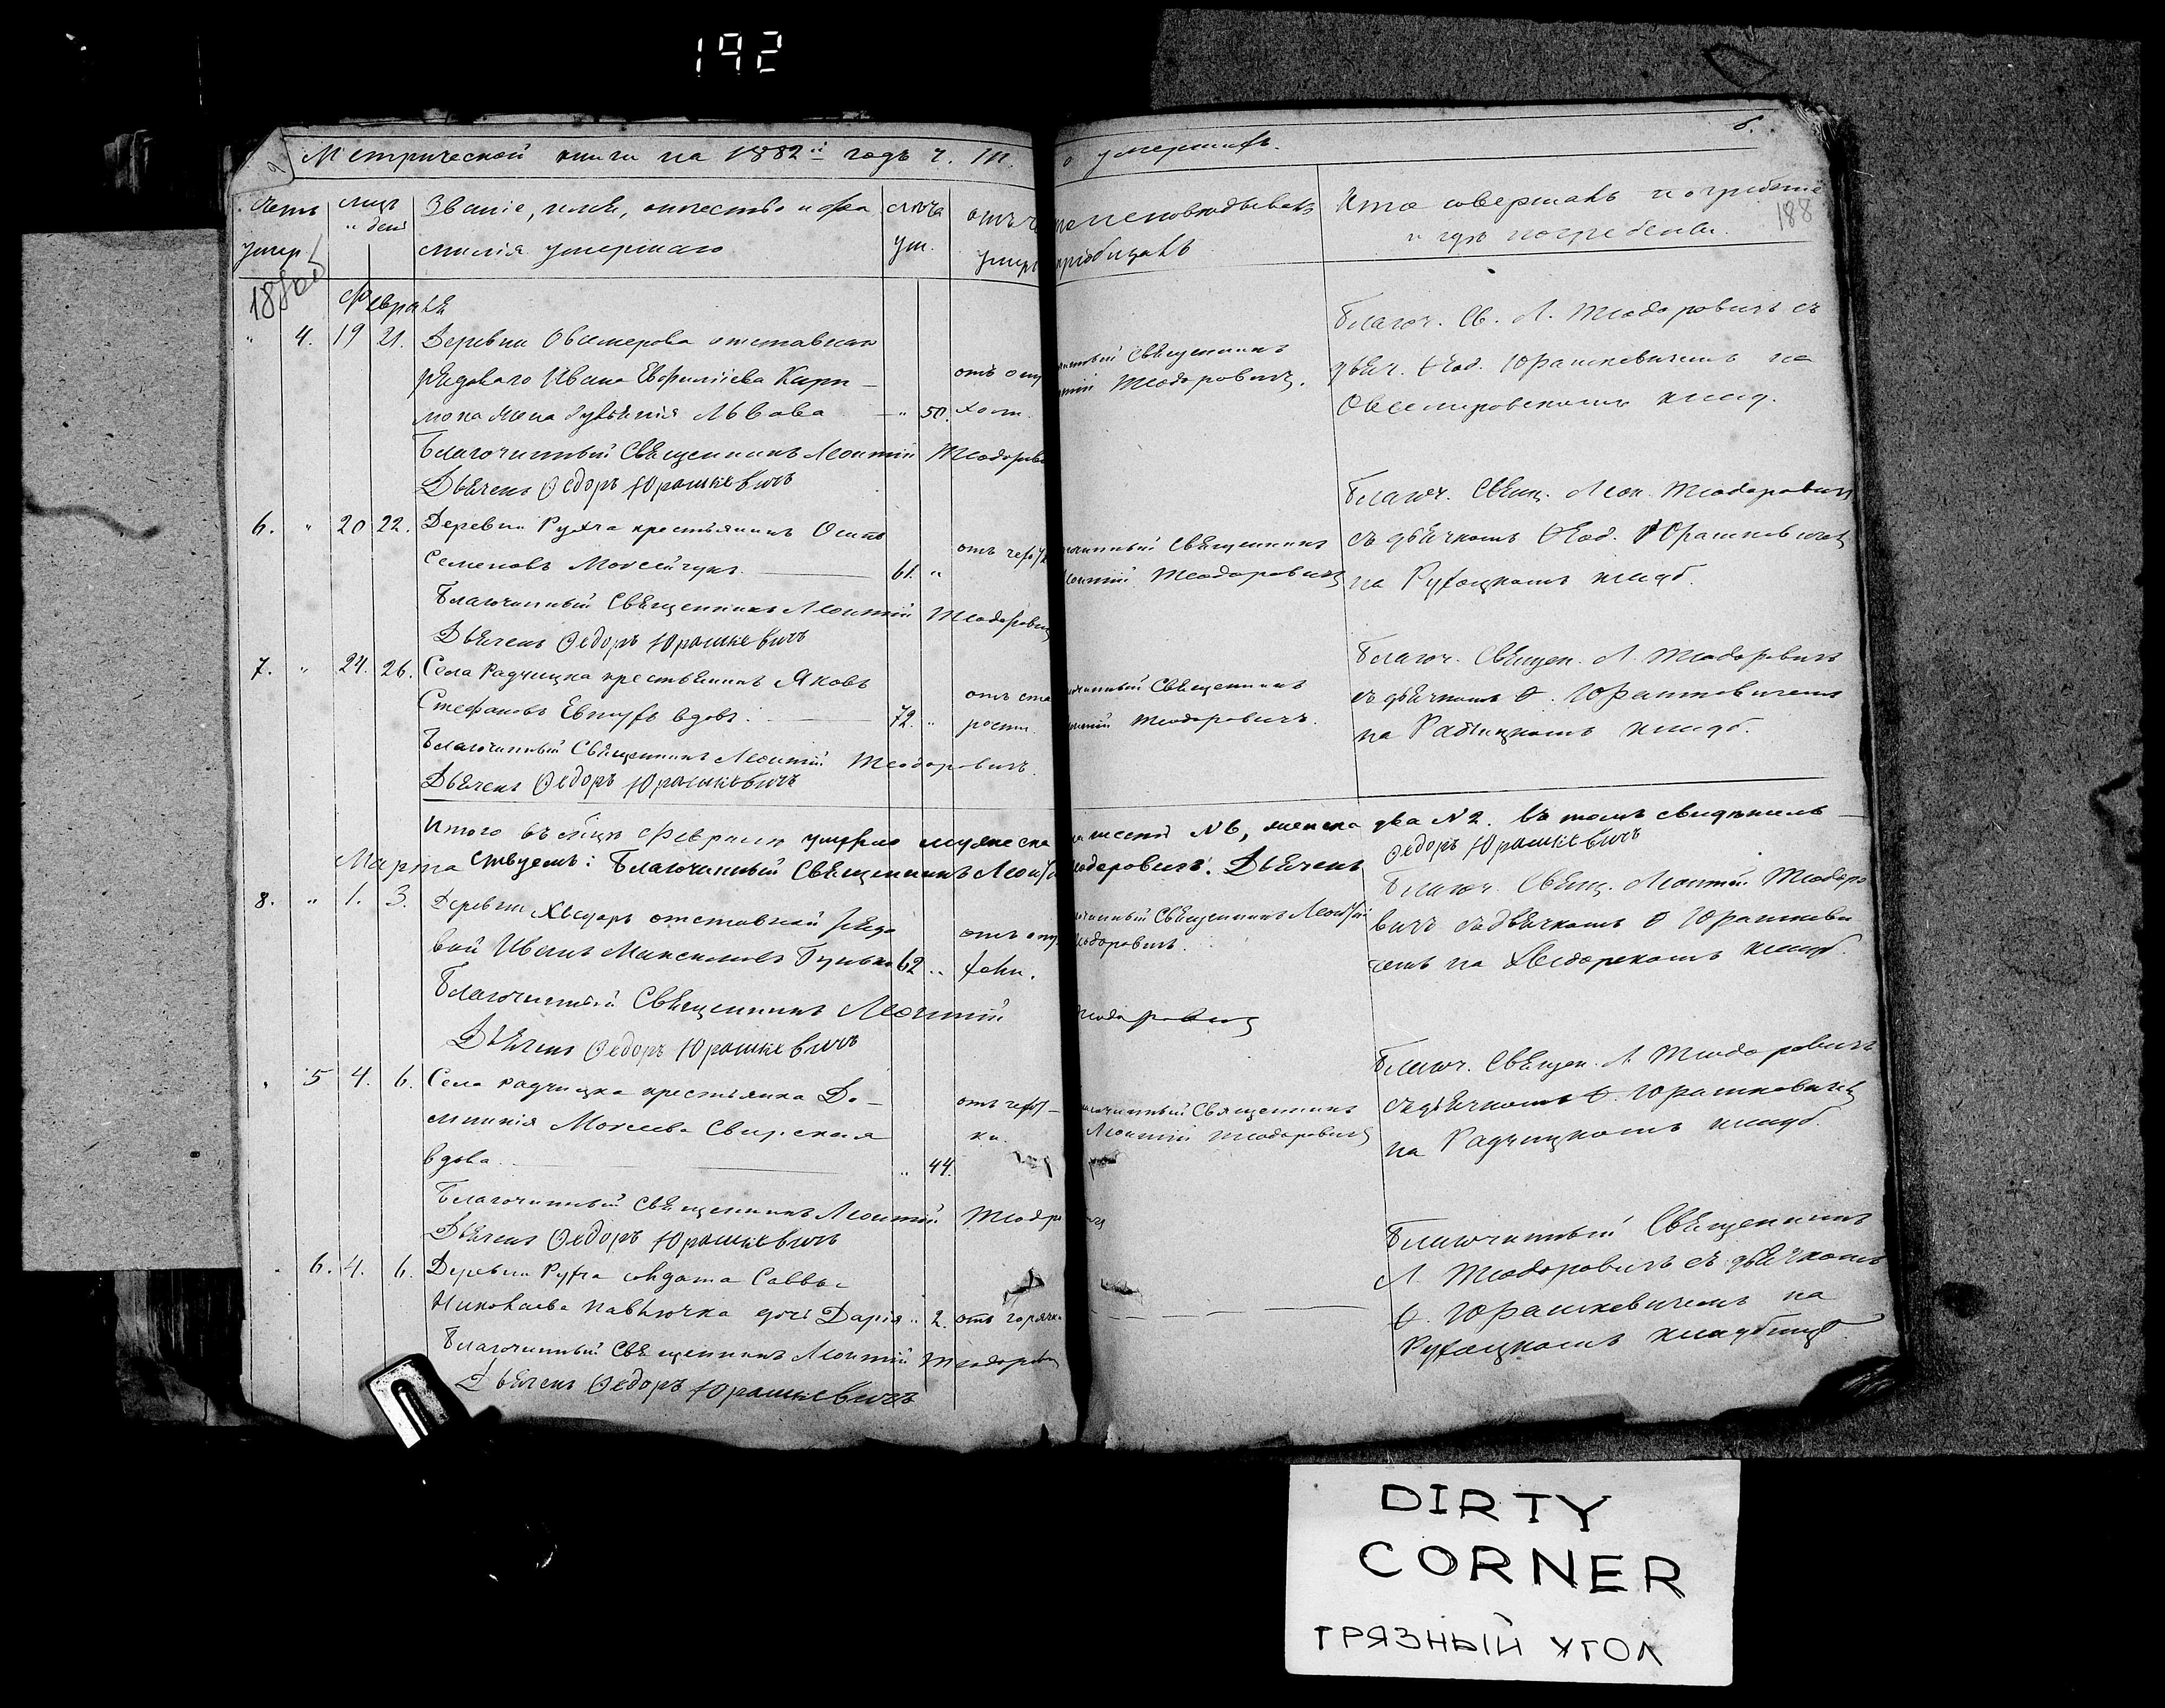 192
Метрической книги на 1882й годъ ч. III.
о умершихъ.
6.
188
Счетъ умер.
Мцъ и день
Званіе, имя, отчество и фамилія умершаго
лѣта ум.
отъ чего умеръ
кто исповѣдывалъ и пріобщалъ
Кто совершалъ погребеніе
и гдѣ погребены.
Февраля
" 4. 19 21. Деревни Овсемерова отставнаго
рядоваго Ивана
жена Львова " 50.
Благоч. Св. Л. Теодоровичъ съ
дьяч. Ѳеод. Юрашкевичемъ на
Овсемировскомъ клад.
Священникъ
Теодоровичъ.
Благочинный Священникъ Леонтій Теодоровичъ
Дьячекъ Ѳедоръ Юрашкевичъ
6. " 20 22. Деревни Рухча крестьянинъ Осипъ
Семеновъ Мокейчукъ. 61. "
Благочинный Священникъ
Леонтій Теодоровичъ
Благоч. Свящ. Леон. Теодоровичъ
съ дьячкомъ Ѳеод. Юрашкевичемъ
на Рухоцкомъ кладб.
Благочинный Священникъ Леонтій Теодоровичъ
Дьячекъ Ѳедоръ Юрашкевичъ
7. " 24. 26. Села Радчицка крестьянинъ Яковъ
Стефановъ Евтухъ вдовъ. 72. "
отъ старости.
Благочинный Священникъ
Леонтій Теодоровичъ.
Благоч. Священ. Л. Теодоровичъ
съ дьячкомъ Ѳ. Юрашкевичемъ
на Радчицкомъ кладб.
Благочинный Священникъ Леонтій Теодоровичъ.
Дьячекъ Ѳедоръ Юрашкевичъ
Итого въ мцѣ Февралѣ умерло мужеска пола шесть №6, женска два №2. Въ томъ свидѣтель-
ствуемъ: Благочинный Священникъ Леонтій Теодоровичъ. Дьячекъ Ѳедоръ Юрашкевичъ
Марта
8. " 1. 3. Деревни Хведоръ отставной рядо
вой Иванъ Максимовъ Гунько 62 "
Благочинный Священникъ Леонтій
Теодоровичъ.
Благоч. Свящ. Леонтій Теодоро
вичъ съ дьячкомъ Ѳ Юрашкеви
чемъ на Хведорскомъ кладб.
Благочинный Священникъ Леонтій Теодоровичъ
Дьячекъ Ѳедоръ Юрашкевичъ
" 5 4. 6. Села Радчицка крестьянка До-
мникія Мокеева Свирская
вдова. " 44.
Благочинный Священникъ
Леонтій Теодоровичъ
Благоч. Священ. Л. Теодоровичъ
съ дьячкомъ Ѳ. Юрашкевичемъ
на Радчицкомъ кладб.
Благочинный Священникъ Леонтій Теодоровичъ
Дьячекъ Ѳедоръ Юрашкевичъ
" 6. 4. 6. Деревни Рухча солдата Саввы
Николаева Павлючка дочь Дарія " 2. отъ горячки
Благочинный Священникъ
Л. Теодоровичъ съ дьячкомъ
Ѳ. Юрашкевичемъ на
Рухоцкомъ кладбищѣ.
Благочинный Священникъ Леонтій Теодоровичъ
Дьячекъ Ѳедоръ Юрашкевичъ
DIRTY
CORNER
ГРЯЗНЫЙ УГОЛ